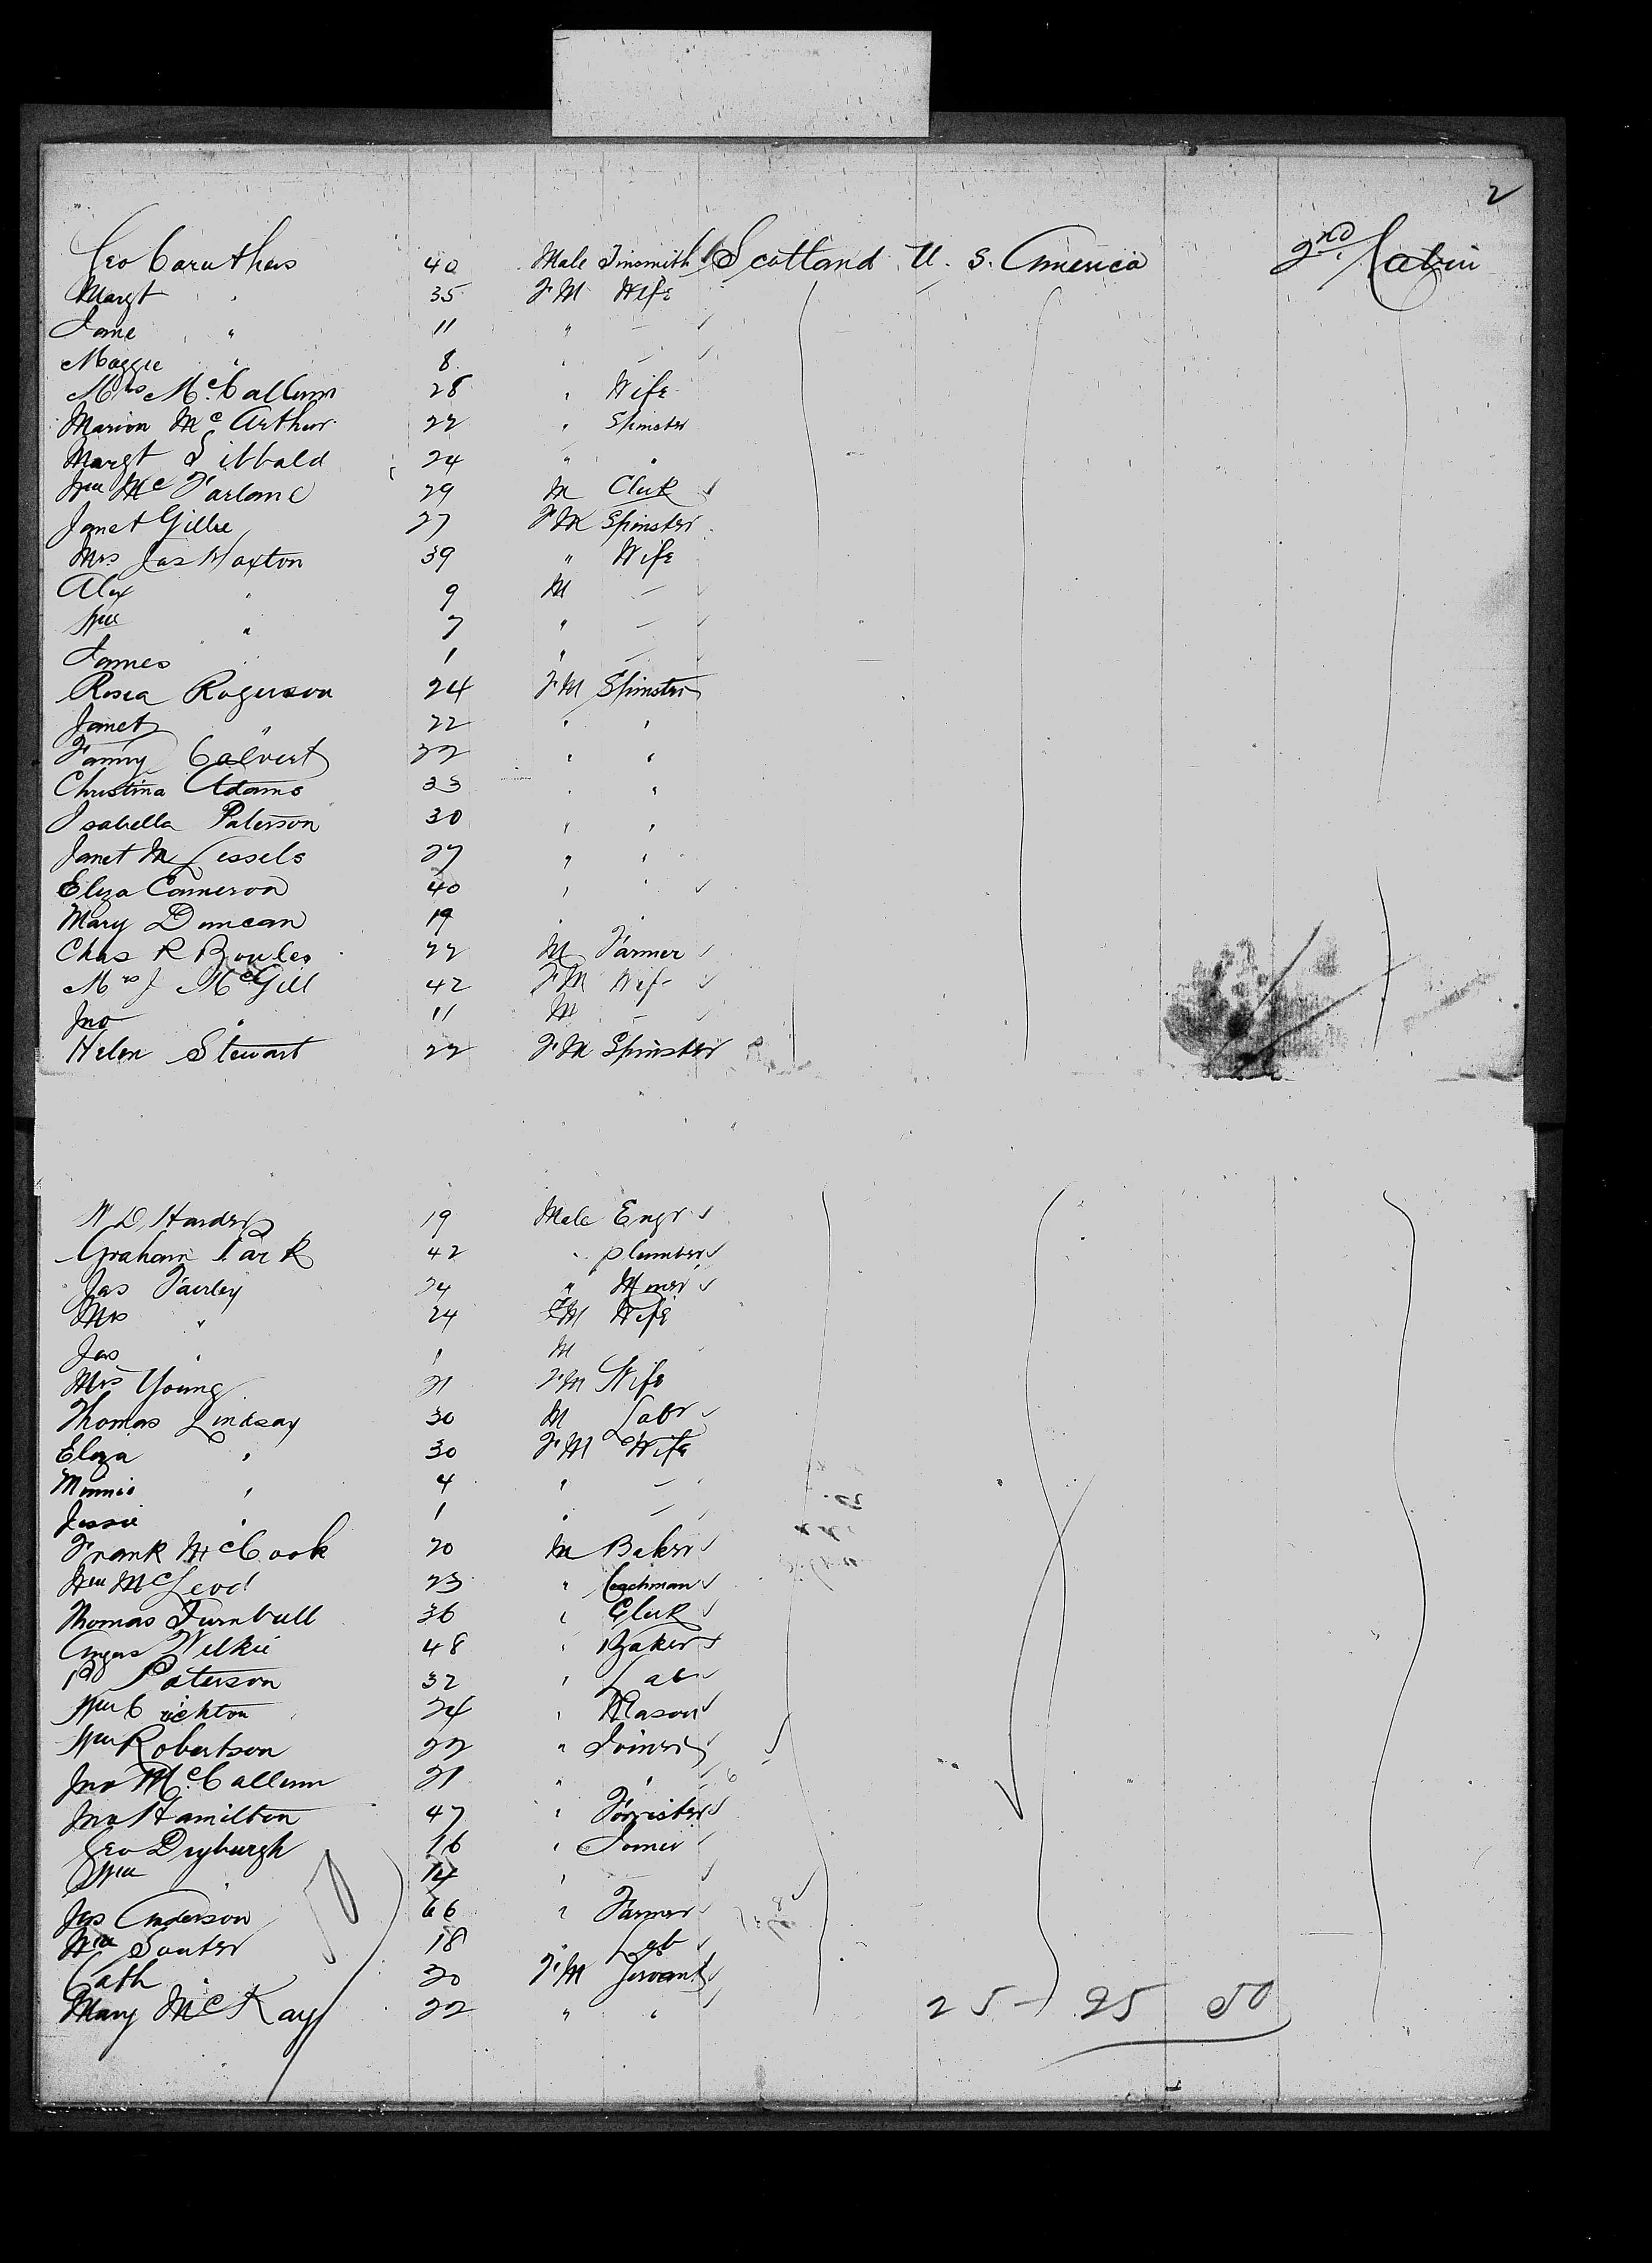 2
Geo Caruthers 40 Male Tinsmith Scotland U. S. America 2nd Cabin
Margt " 35 F M Wife
Jane " 11 " —
Maggie " 8 " —
Mrs McCallum 28 " Wife
Marion McArthur 22 " Spinster
Margt Sibbald 24 " "
Wm McFarlane 29 M Clerk
Janet Gillie 27 F M Spinster
Mrs Jas Haxton 39 " Wife
Alex " 9 M —
Wm " 7 " —
James 1 " —
Rosea Rogerson 24 F M Spinster
Janet " 22 " "
Fanny Calvert 22 " "
Christina Adams 33 " "
Isabella Paterson 30 " "
Janet M Lessels 27 " "
Eliza Cameron 40 " "
Mary Duncan 19 " "
Chas R Bowles 22 M Farmer
Mrs J McGill 42 F M Wife
Jno " 11 M —
Helen Stewart 22 F M Spinster
W D Hardy 19 Male Engr
Graham Park 42 " plumber
Jas Fairley 24 " Miner
Mrs " 24 F M Wife
Jas " 1 M
Mrs Young 21 F M Wife
Thomas Lindsay 30 M Labr
Eliza " 30 F M Wife
Minnie " 4 " —
Jessie " 1 " —
Frank McCook 20 M Baker
Wm McLeod 23 " Coachman
Thomas Turnbull 36 " Clerk
Angus Wilkie 48 " Baker
Paterson 32 " Lab
Wm Crichton 24 " Mason
Wm Robertson 22 " Joiner
Jno McCallum 21 " "
Jno Hamilton 47 " Forrister
Geo Dryburgh 16 " Joiner
Wm " 14 " —
Jas Anderson 66 " Farmer
Wm Souter 18 " Lab
Cath " 20 F M Servant
Mary McKay 22 " "
25 - 25 50